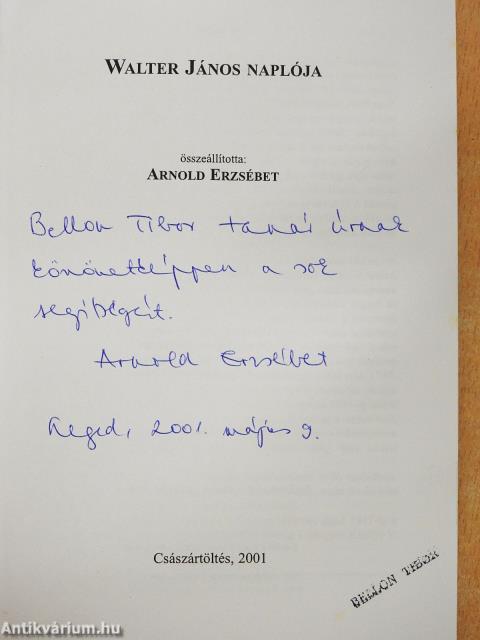 WALTER JÁNOS NAPLÓJA
összeállította:
ARNOLD ERZSÉBET
Bellon Tibor tanár úrnak
köszönetképpen a sok
segítségért.
Arnold Erzsébet
Szeged, 2001. május 9.
Császártöltés, 2001
BELLON TIBOR
Antikvárium.hu